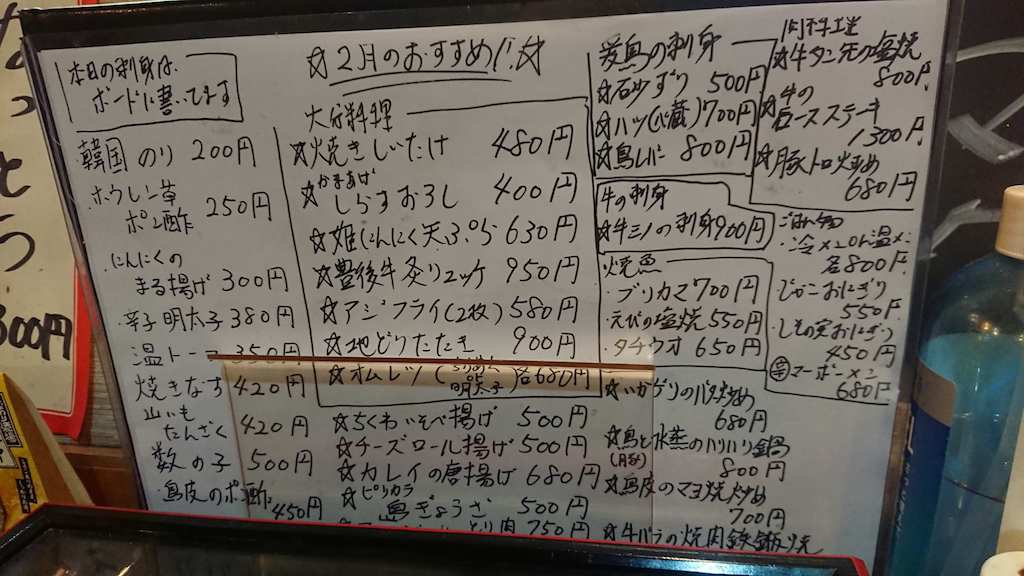 本日の刺身は、
ボードに書いてます
韓国のり 200円
ホウレン草
ポン酢 250円
にんにくの
まる揚げ 300円
辛子明太子 380円
温トー 350円
焼きなす 420円
山いも
たんざく 420円
数の子 500円
鳥皮のポン酢
450円
☆2月のおすすめ!!☆
大分料理
☆焼きしいたけ 480円
かまあげ
☆しらすおろし 400円
☆姫にんにく天ぷら 630円
☆豊後牛炙りユッケ 950円
☆アジフライ(2枚) 580円
☆地どりたたき 900円
☆オムレツ(明太子)各680円
☆ちくわいそべ揚げ 500円
☆チーズロール揚げ 500円
☆カレイの唐揚げ 680円
☆ピリカラ
鳥ぎょうざ 500円
とり肉 750円
の刺身
☆石めずり 500円
☆ハツ(心臓) 700円
☆鳥レバー 800円
牛の刺身
☆牛ミノの刺身 900円
焼魚
・ブリカマ 700円
・えびの塩焼 550円
・タチウオ 650円
680円
☆鳥と水菜のハリハリ鍋
800円
☆鳥皮のマヨ焼炒め
700円
☆牛バラの焼肉鉄板焼
☆牛タン先の塩焼
800円
☆牛の
ロースステーキ
1300円
☆豚トロ炒め
680円
ごはん物
・冷メン or 温メン
各800円
・じゃこおにぎり
550円
・しその実おにぎり
450円
マーボーメン
680円
300円